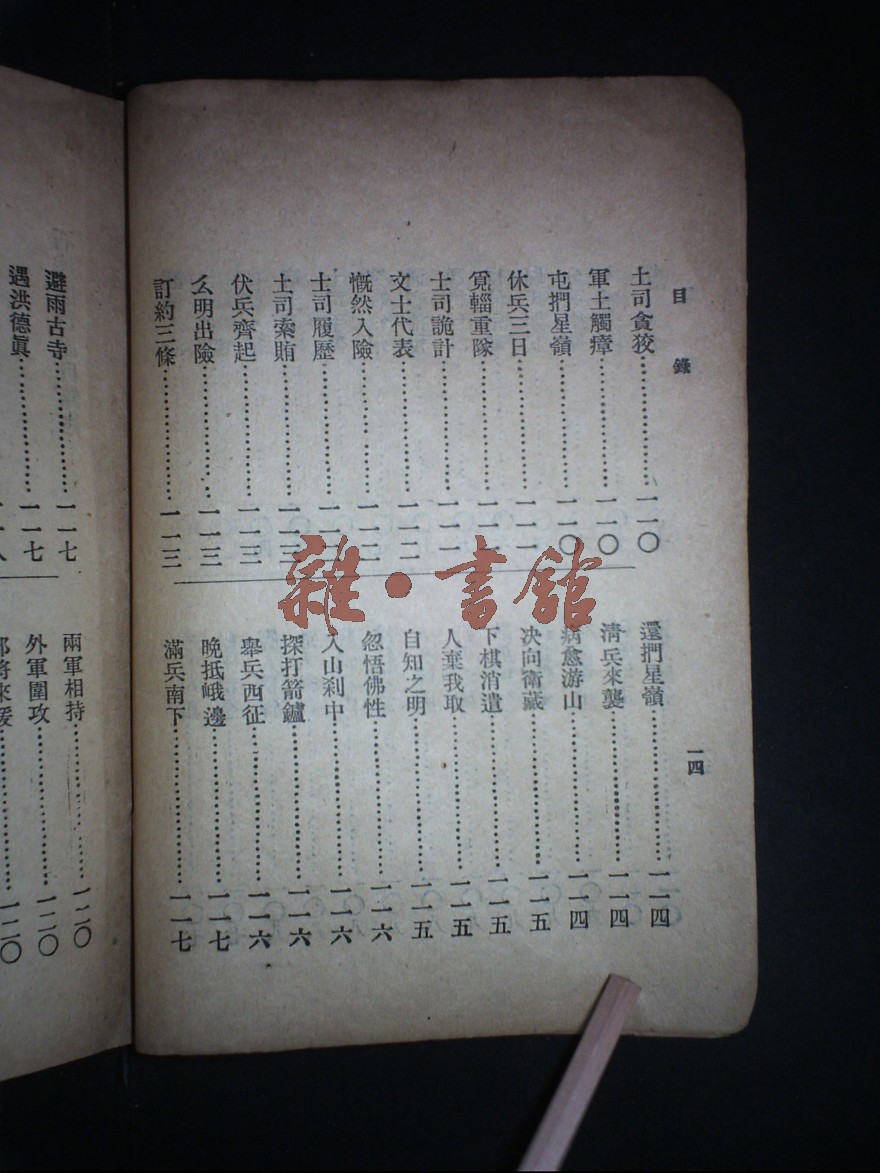 目錄
一四
土司貪狡⋯⋯一一〇
軍士觸瘴⋯⋯一一〇
屯捫星嶺⋯⋯一一〇
休兵三日⋯⋯一一一
覓輜重隊⋯⋯一一一
土司詭計⋯⋯一一一
文士代表⋯⋯一一二
慨然入險⋯⋯一一二
土司履歷⋯⋯一一二
土司索賄⋯⋯一一三
伏兵齊起⋯⋯一一三
么明出險⋯⋯一一三
訂約三條⋯⋯一一三
還捫星嶺⋯⋯一一四
清兵來襲⋯⋯一一四
病愈游山⋯⋯一一四
决向衛藏⋯⋯一一五
下棋消遣⋯⋯一一五
人棄我取⋯⋯一一五
自知之明⋯⋯一一五
忽悟佛性⋯⋯一一六
入山刹中⋯⋯一一六
探打箭鑪⋯⋯一一六
舉兵西征⋯⋯一一六
晚抵峨邊⋯⋯一一七
滿兵南下⋯⋯一一七
避雨古寺⋯⋯一一七
遇洪德眞⋯⋯一一七
兩軍相持⋯⋯一二〇
外軍圍攻⋯⋯一二〇
一二〇
雜·書館